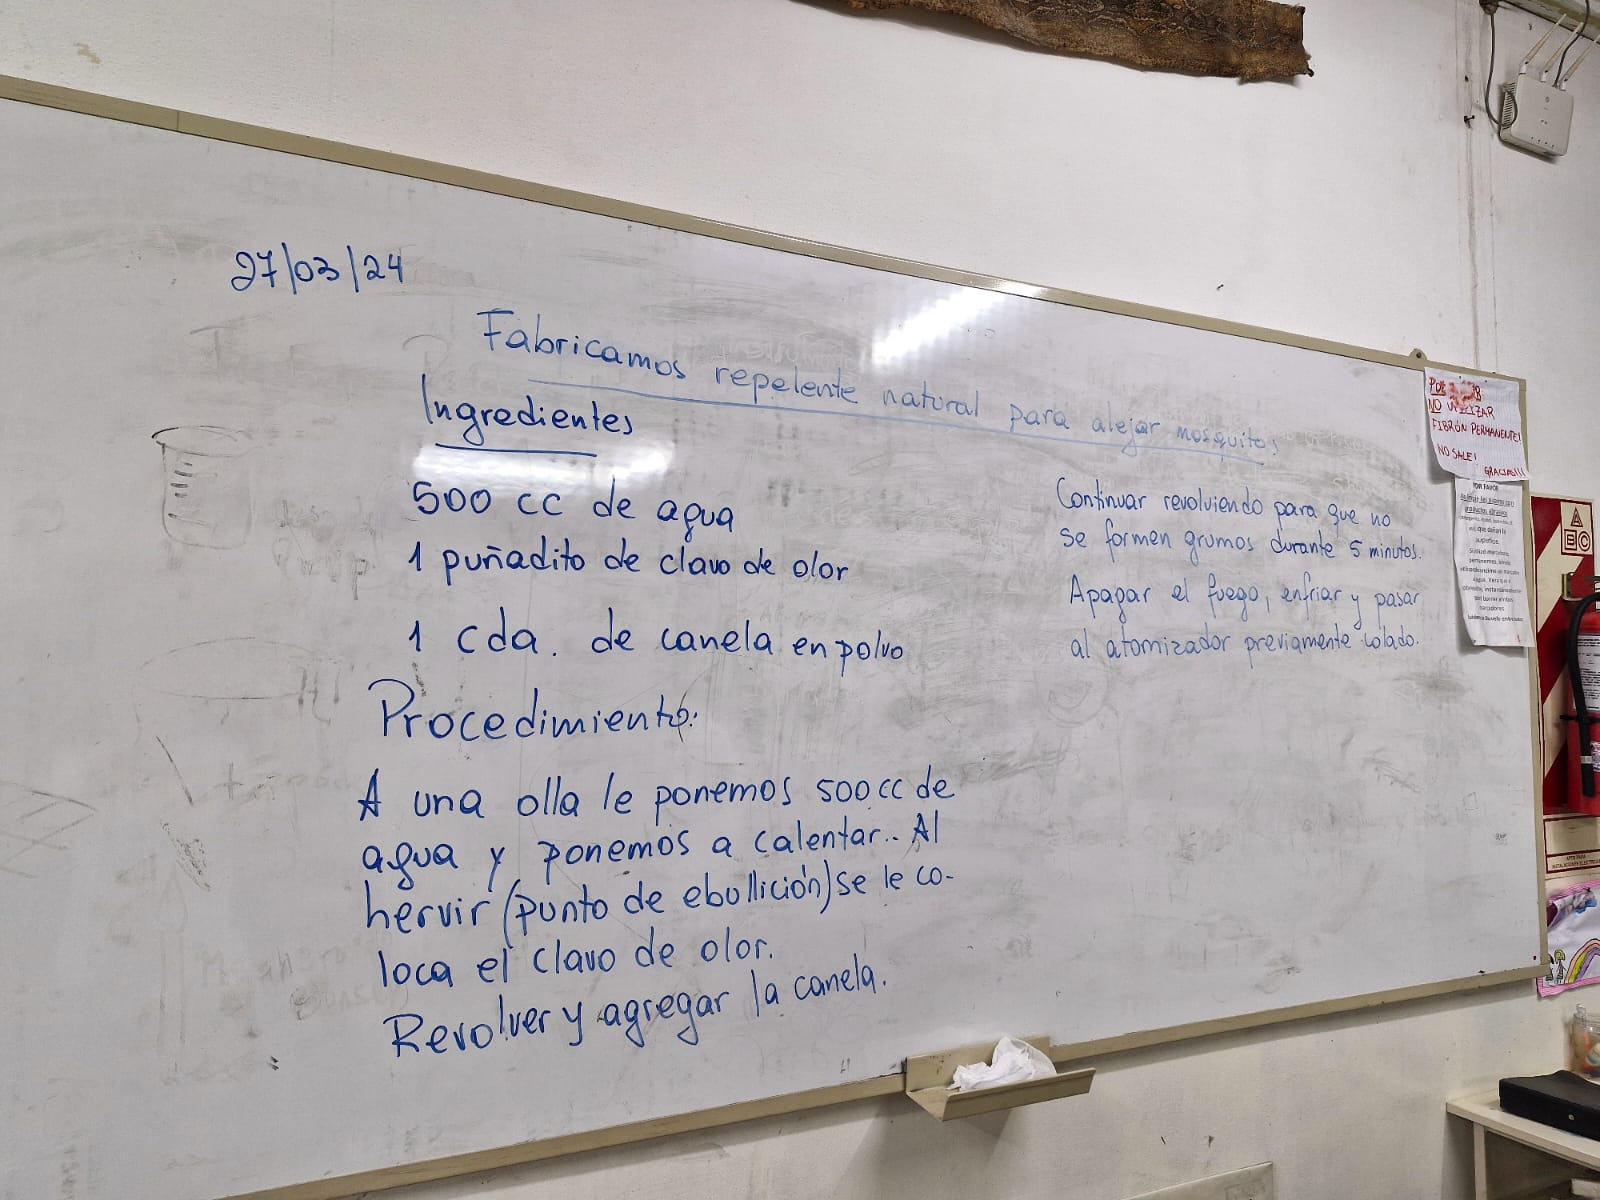 27/03/24
Fabricamos repelente natural para alejar mosquitos
Ingredientes
500 cc de agua
1 puñadito de clavo de olor
1 cda. de canela en polvo
Procedimiento:
A una olla le ponemos 500 cc de
agua y ponemos a calentar.. Al
hervir (punto de ebullición) se le co-
loca el clavo de olor.
Revolver y agregar la canela.
Continuar revolviendo para que no
se formen grumos durante 5 minutos.
Apagar el fuego, enfriar y pasar
al atomizador previamente colado.
POR
NO UTILIZAR
FIBRÓN PERMANENTE!
NO SALE!
GRACIAS!!!
POR FAVOR
A
B C